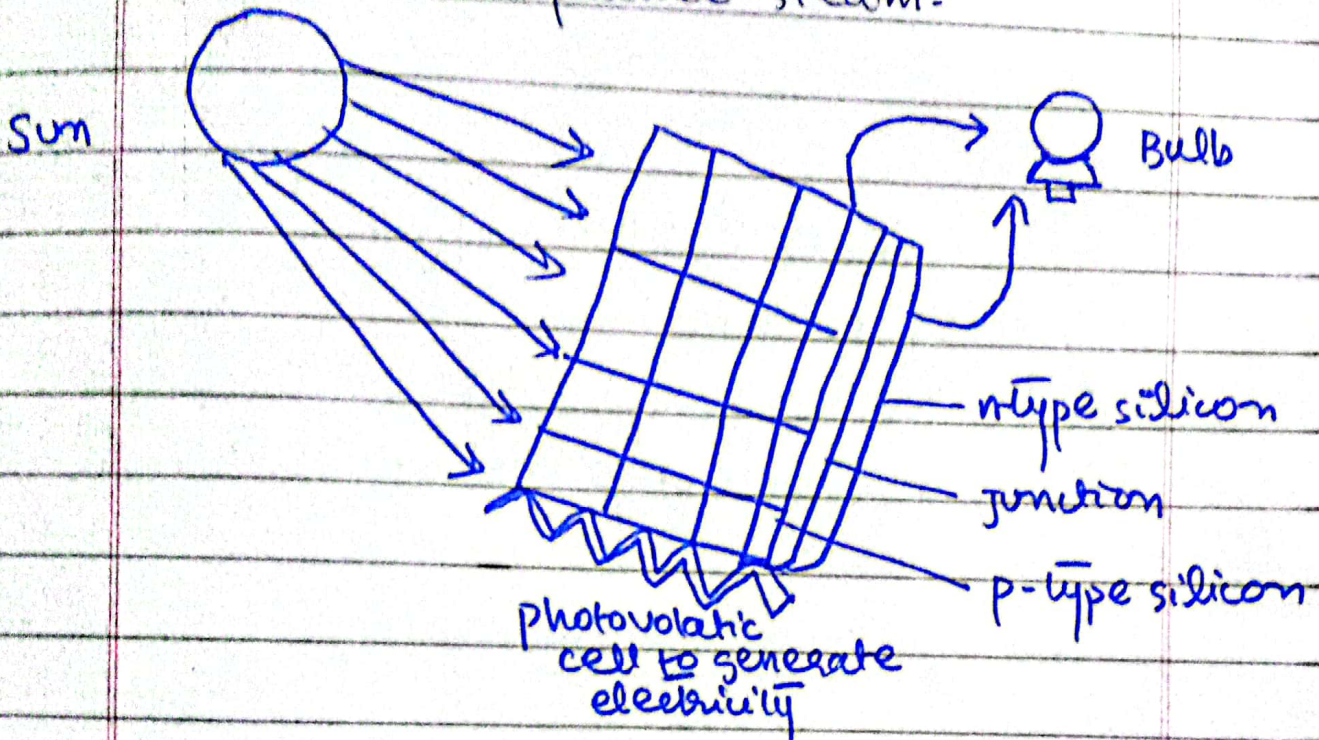 steam.
Sun
Bulb
n-type silicon
junction
p-type silicon
photovolatic
cell to generate
electricity